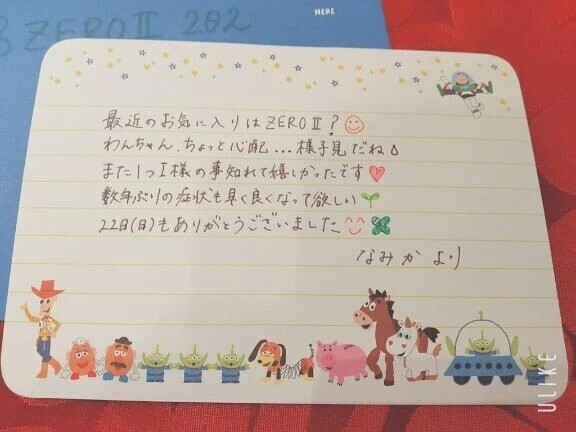 ZEROⅡ 202
HERE
最近のお気に入りはZEROⅡ?
わんちゃん、ちょっと心配...様子見だね
また1つI様の事知れて嬉しかったです
数年ぶりの症状も早く良くなって欲しい
22日(日)もありがとうございました
なみかより
ULIKE